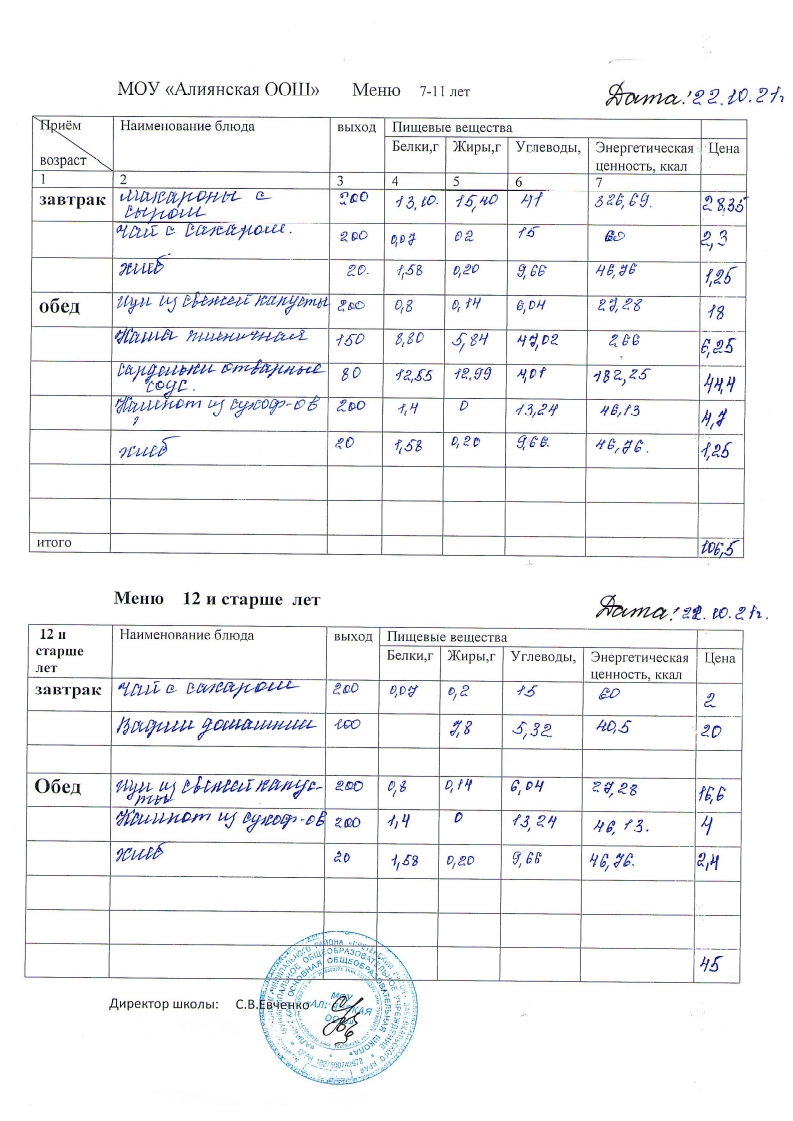 МОУ «Алиянская ООШ» Меню 7-11 лет Дата: 22.10.21г
Приём возраст Наименование блюда выход Пищевые вещества
Белки,г Жиры,г Углеводы, Энергетическая ценность, ккал Цена
1 2 3 4 5 6 7
завтрак Макароны с сыром 200 13,10. 15,40 41 326,69. 28,35
Чай с сахаром. 200 0,07 02 15 60 2,3
хлеб 20. 1,58 0,20 9,66 46,76 1,25
обед Щи из свежей капусты 200 0,8 0,14 6,04 27,28 18
Каша пшеничная 150 8,80 5,84 47,02 266 6,25
Сардельки отварные соус. 80 12,55 12,99 4,01 182,25 44,4
Компот из сухоф-ов 200 1,4 0 13,24 46,13 4,7
хлеб 20 1,58 0,20 9,66. 46,76. 1,25
итого 106,5
Меню 12 и старше лет Дата: 22.10.21г.
12 и старше лет Наименование блюда выход Пищевые вещества
Белки,г Жиры,г Углеводы, Энергетическая ценность, ккал Цена
завтрак Чай с сахаром 200 0,07 0,2 15 60 2
Вафли домашнии 100 7,8 5,32 40,5 20
Обед Щи из свежей капус-ты 200 0,8 0,14 6,04 27,28 16,6
Компот из сухоф-ов 200 1,4 0 13,24 46,13. 4
хлеб 20 1,58 0,20 9,66 46,76. 2,4
45
Директор школы: С.В.Евченко